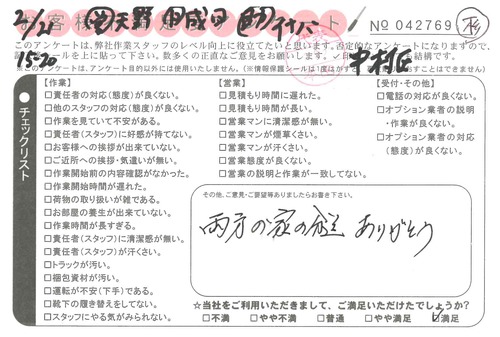 2/21
№ 042769
15-20
このアンケートは、弊社作業スタッフのレベル向上に役立てたいと思います。否定的なアンケートになりますので、
※このアンケートは、アンケート目的以外には使用いたしません。
チェックリスト
【作業】
□責任者の対応(態度)が良くない。
□他のスタッフの対応(態度)が良くない。
□作業を見ていて不安がある。
□責任者(スタッフ)に好感が持てない。
□お客様への挨拶が出来ていない。
□ご近所への挨拶・気遣いが無い。
□作業開始前の内容確認がなかった。
□作業開始時間が遅れた。
□荷物の取り扱いが雑である。
□お部屋の養生が出来ていない。
□作業時間が長すぎる。
□責任者(スタッフ)に清潔感が無い。
□責任者(スタッフ)が汗くさい。
□トラックが汚い。
□梱包資材が汚い。
□運転が不安(下手)である。
□靴下の履き替えをしてない。
□スタッフにやる気がみられない。
【営業】
□見積もり時間に遅れた。
□見積もり時間が長い。
□営業マンに清潔感が無い。
□営業マンが煙草くさい。
□営業マンが汗くさい。
□営業態度が良くない。
□営業の説明と作業が一致してない。
【受付・その他】
□電話の対応が良くない。
□オプション業者の説明
・作業が良くない。
□オプション業者の対応
(態度)が良くない。
その他、ご意見・ご要望等ありましたらお書き下さい。
両方の家の
ありがとう
☆当社をご利用いただきまして、ご満足いただけたでしょうか?
□不満 □やや不満 □普通 □やや満足 ☑満足